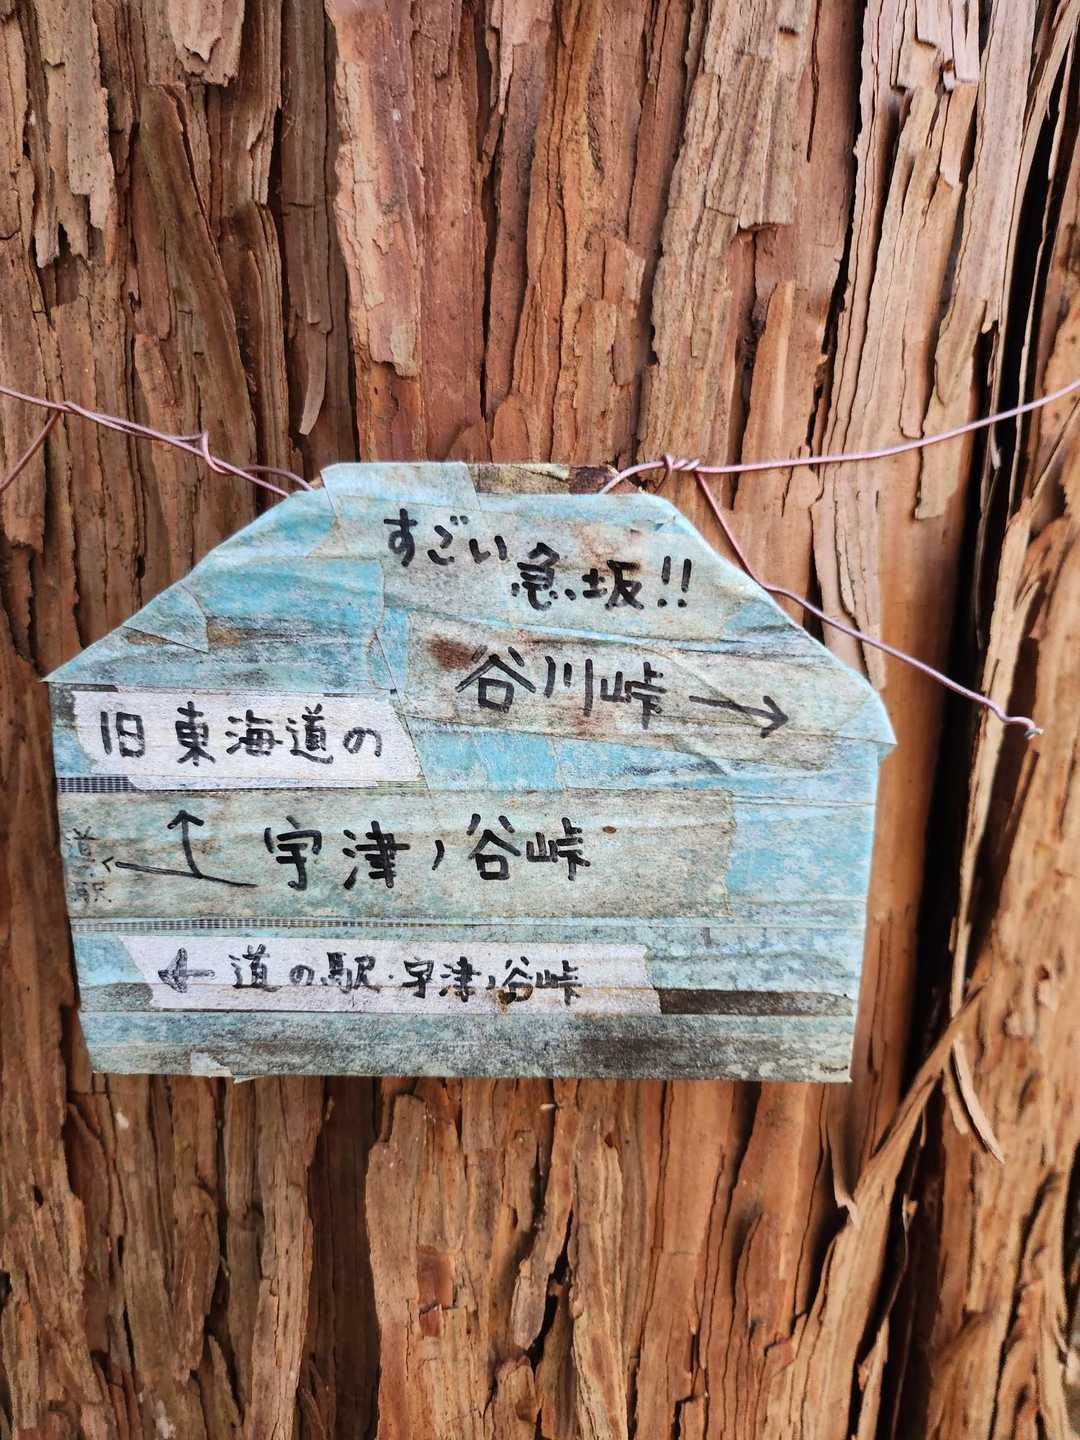 すごい急坂!!
谷川峠 →
旧東海道の
宇津ノ谷峠
道の駅
← 道の駅・宇津ノ谷峠